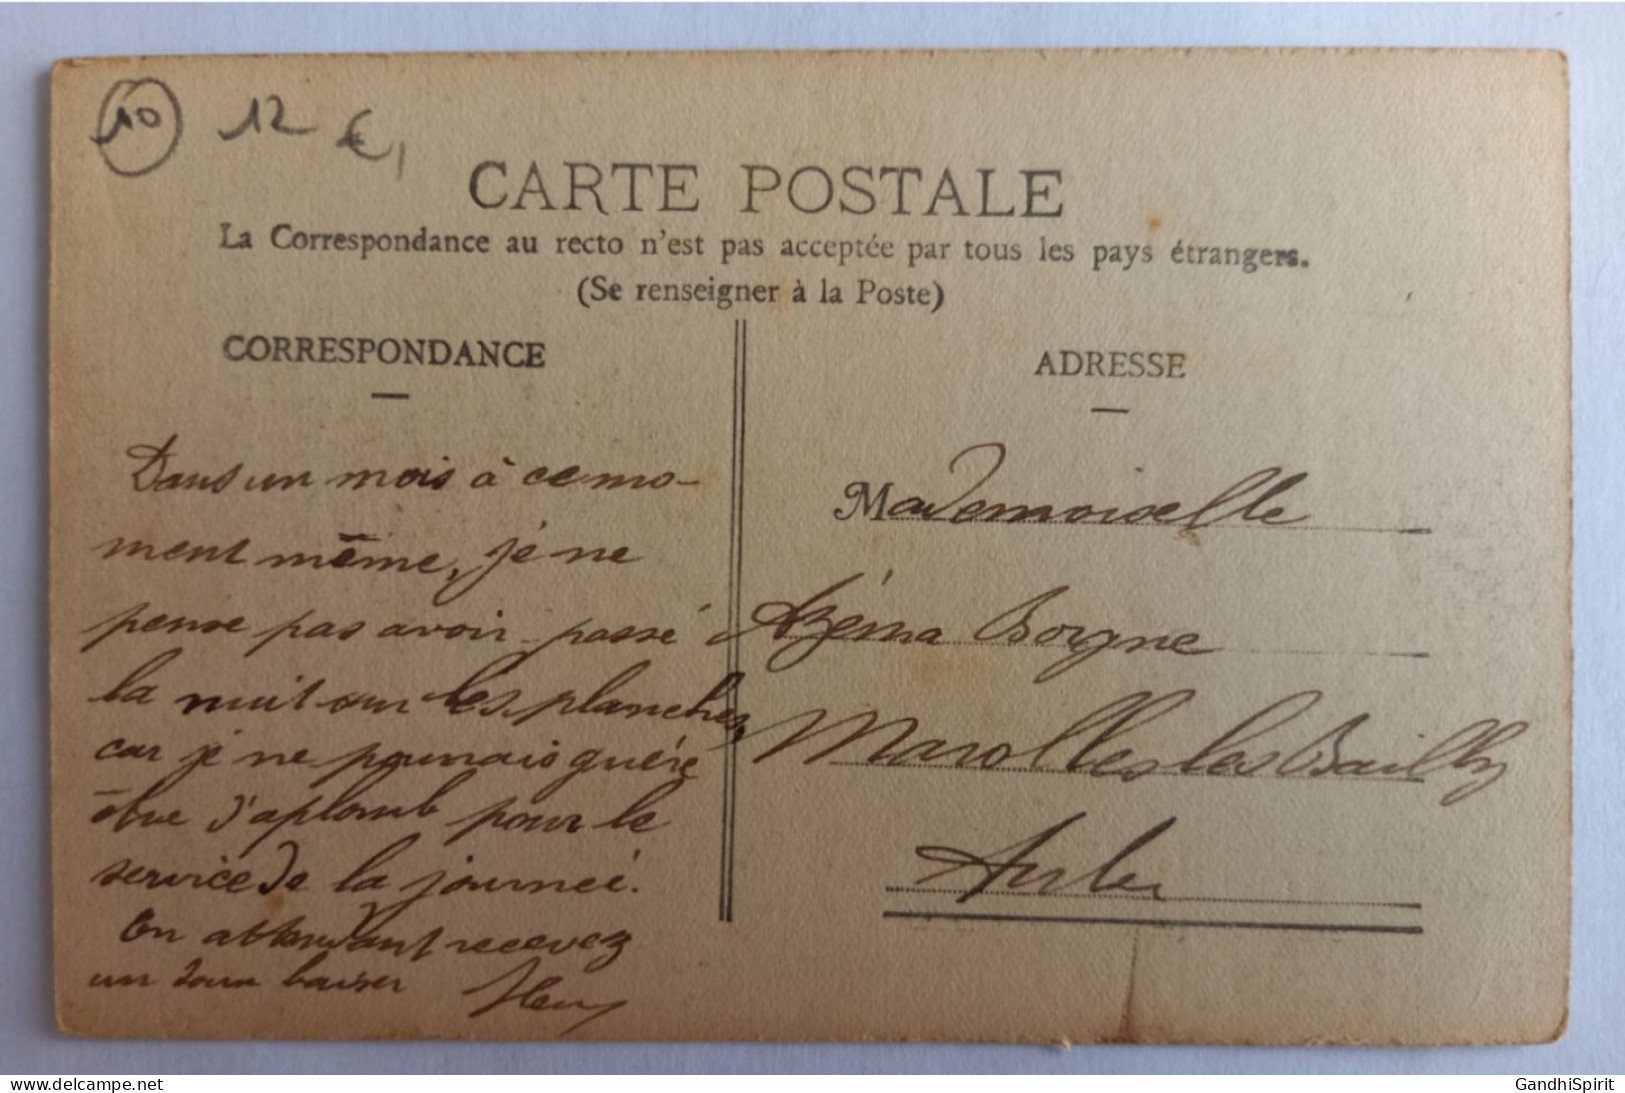 10 12 €
CARTE POSTALE
La Correspondance au recto n'est pas acceptée par tous les pays étrangers.
(Se renseigner à la Poste)
CORRESPONDANCE
Dans un mois à ce mo-
ment même, je ne
pense pas avoir passé
la nuit sur les planches,
car je ne pourrais guère
être d'aplomb pour le
service de la journeé.
En attendant recevez
un doux baiser Henry
ADRESSE
Mademoiselle
Azéma Borgne
Marolles les Bailly
Aube
delcampe.net
GandhiSpirit